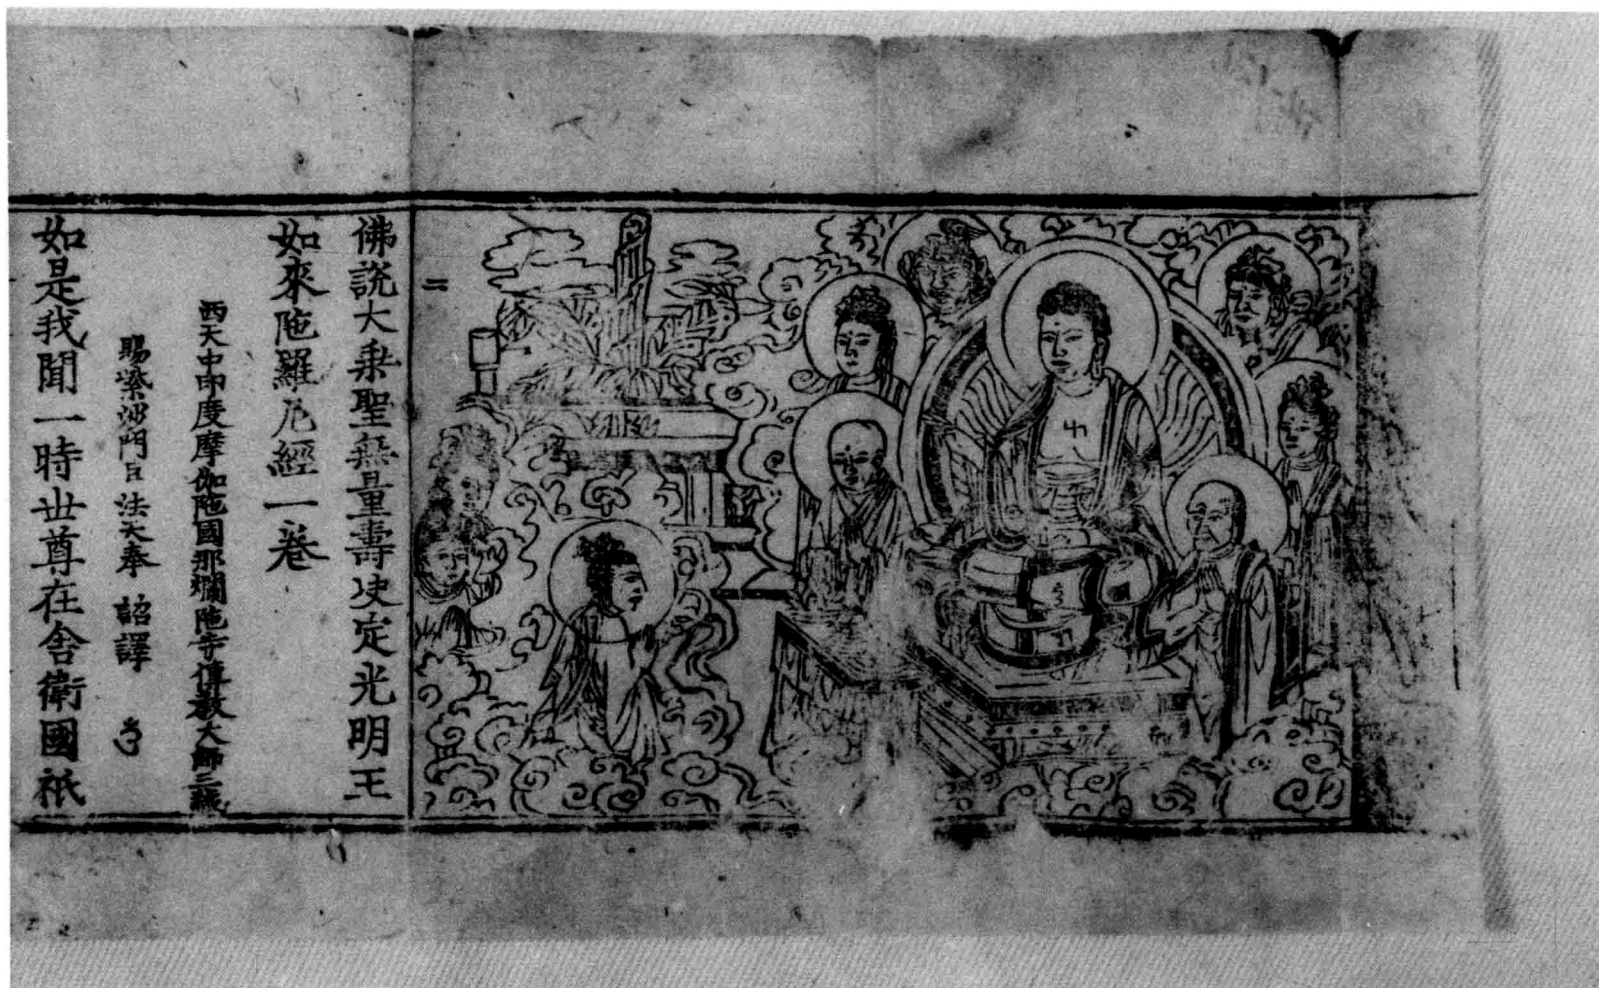 二
佛說大乗聖無量壽决定光明王
如來陁羅尼經一卷
西天中印度摩伽陁國那爛陁寺傳教大師三藏
賜紫沙門臣法天奉 詔譯
如是我聞一時世尊在舍衛國祇